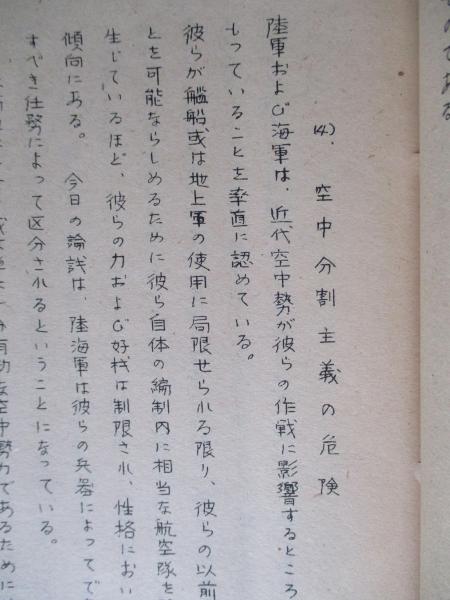 のである
14). 空中分割主義の危険
陸軍および海軍は、近代空中勢が彼らの作戦に影響するところ
もっていることを率直に認めている。
彼らが艦船或は地上軍の使用に局限せられる限り、彼らの以前
とを可能ならしめるために彼ら自体の編制内に相当な航空隊を
生じているほど、彼らの力および好機は制限され、性格におい
傾向にある。 今日の論議は、陸海軍は彼らの兵器によってで
すべき任務によって区分されるということになっている。
有効な空中勢力であるために